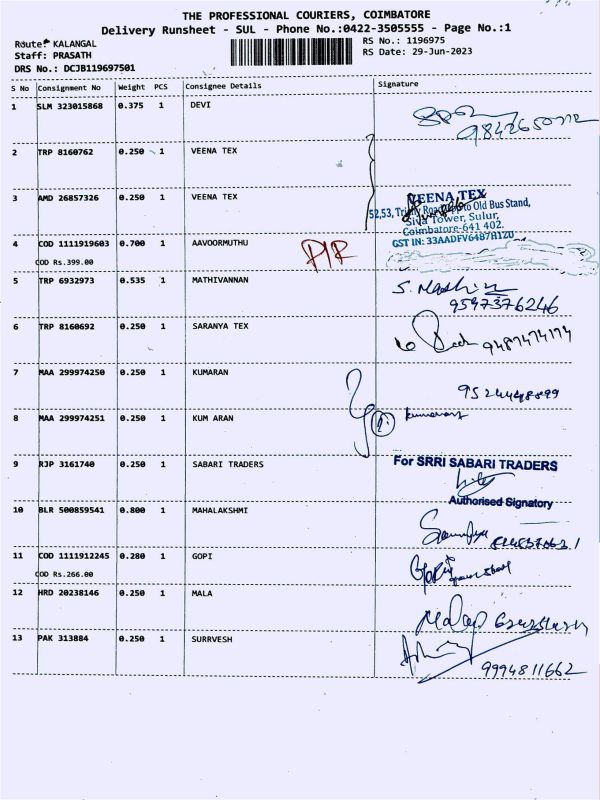 THE PROFESSIONAL COURIERS, COIMBATORE
Delivery Runsheet - SUL - Phone No.:0422-3505555 - Page No.:1
Route: KALANGAL
RS No.: 1196975
Staff: PRASATH
RS Date: 29-Jun-2023
DRS No.: DCJB119697501
S No Consignment No Weight PCS Consignee Details Signature
1 SLM 323015868 0.375 1 DEVI
9842650112
2 TRP 8160762 0.250 1 VEENA TEX
3 AMD 26857326 0.250 1 VEENA TEX
VEENA TEX
52,53, Road, to Old Bus Stand,
Siva Tower, Sulur,
Coimbatore-641 402.
GST IN: 33AADFV6487H1ZU
4 COD 1111919603 0.700 1 AAVOORMUTHU
COD Rs.399.00
5 TRP 6932973 0.535 1 MATHIVANNAN
9597376246
6 TRP 8160692 0.250 1 SARANYA TEX
9487474174
7 MAA 299974250 0.250 1 KUMARAN
9524448899
8 MAA 299974251 0.250 1 KUM ARAN
kumaran
9 RJP 3161740 0.250 1 SABARI TRADERS
For SRRI SABARI TRADERS
Authorised Signatory
10 BLR 500859541 0.800 1 MAHALAKSHMI
11 COD 1111912245 0.280 1 GOPI
COD Rs.266.00
12 HRD 20238146 0.250 1 MALA
13 PAK 313884 0.250 1 SURRVESH
9994811662